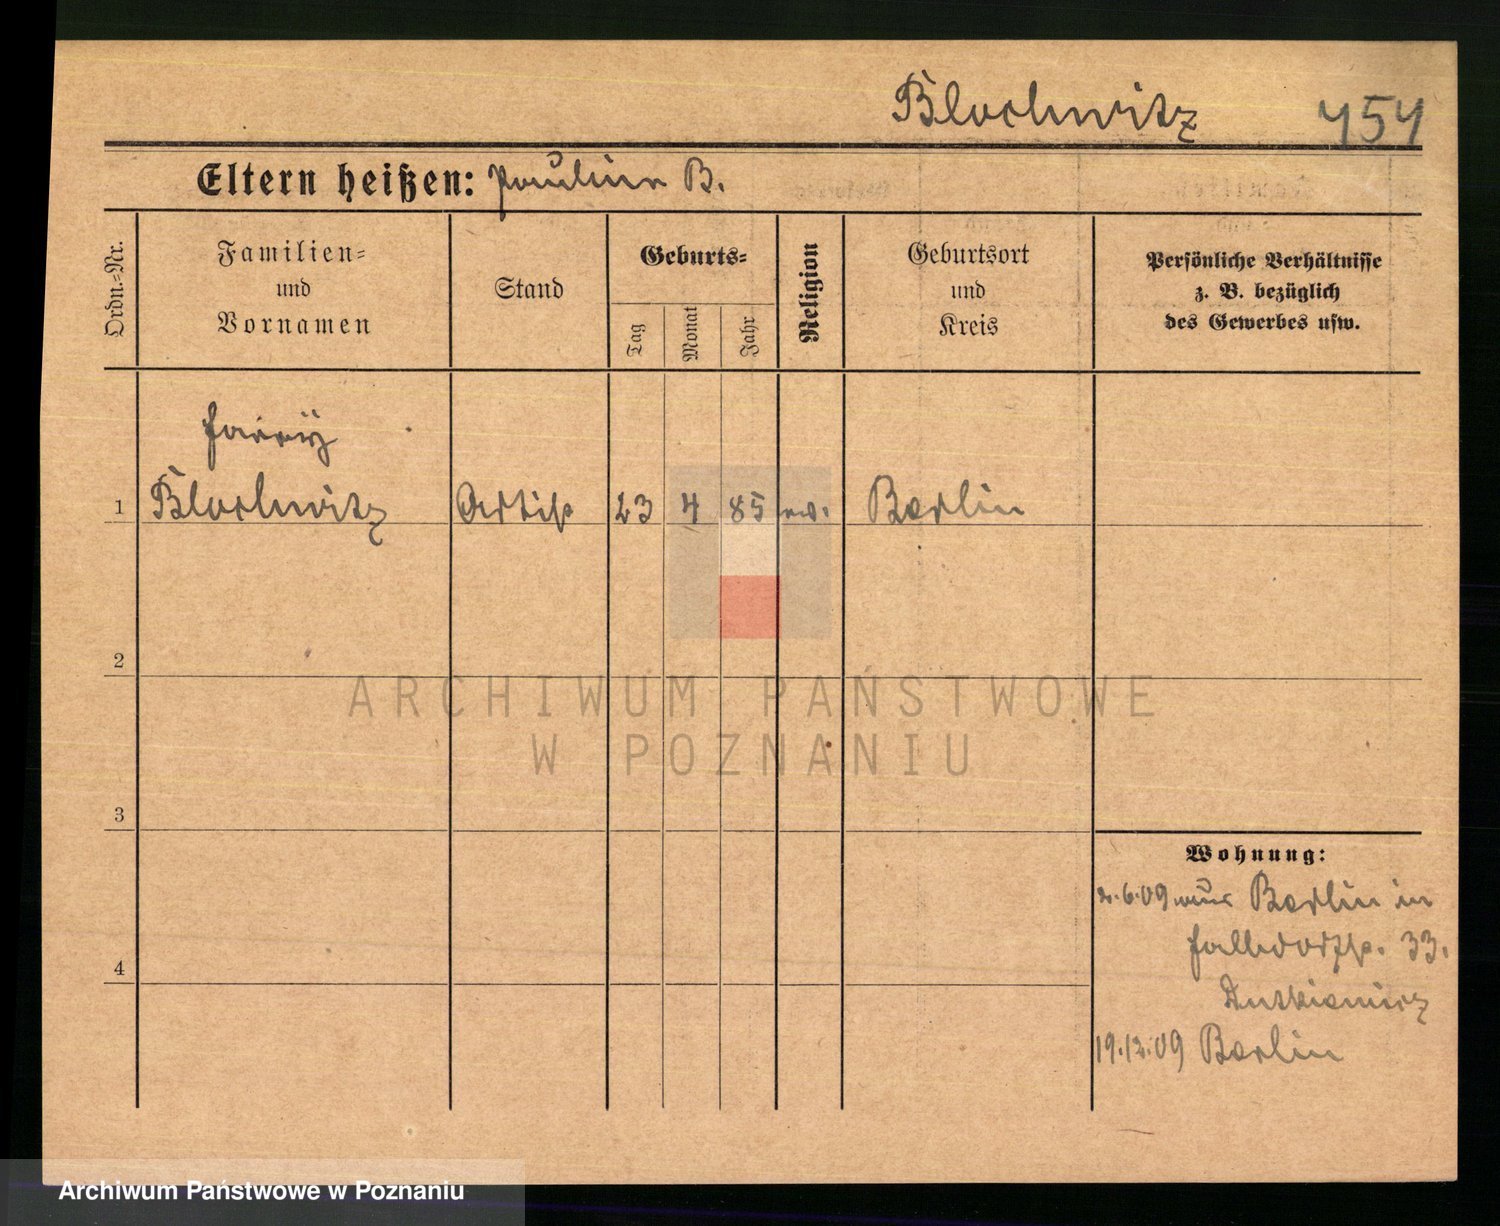 Blochwitz 754
Eltern heißen: Pauline B.
Ordn.-Nr.
Familien-
und
Vornamen
Stand
Geburts-
Tag
Monat
Jahr
Religion
Geburtsort
und
Kreis
Persönliche Verhältnisse
z. B. bezüglich
des Gewerbes usw.
Harry
1 Blochwitz Artist 23 4 85 ev. Berlin
2
3
4
Wohnung:
2.6.09 aus Berlin in
Halbdorfstr. 33.
Dutkiewicz
19.12.09 Berlin
ARCHIWUM PAŃSTWOWE
W POZNANIU
Archiwum Państwowe w Poznaniu